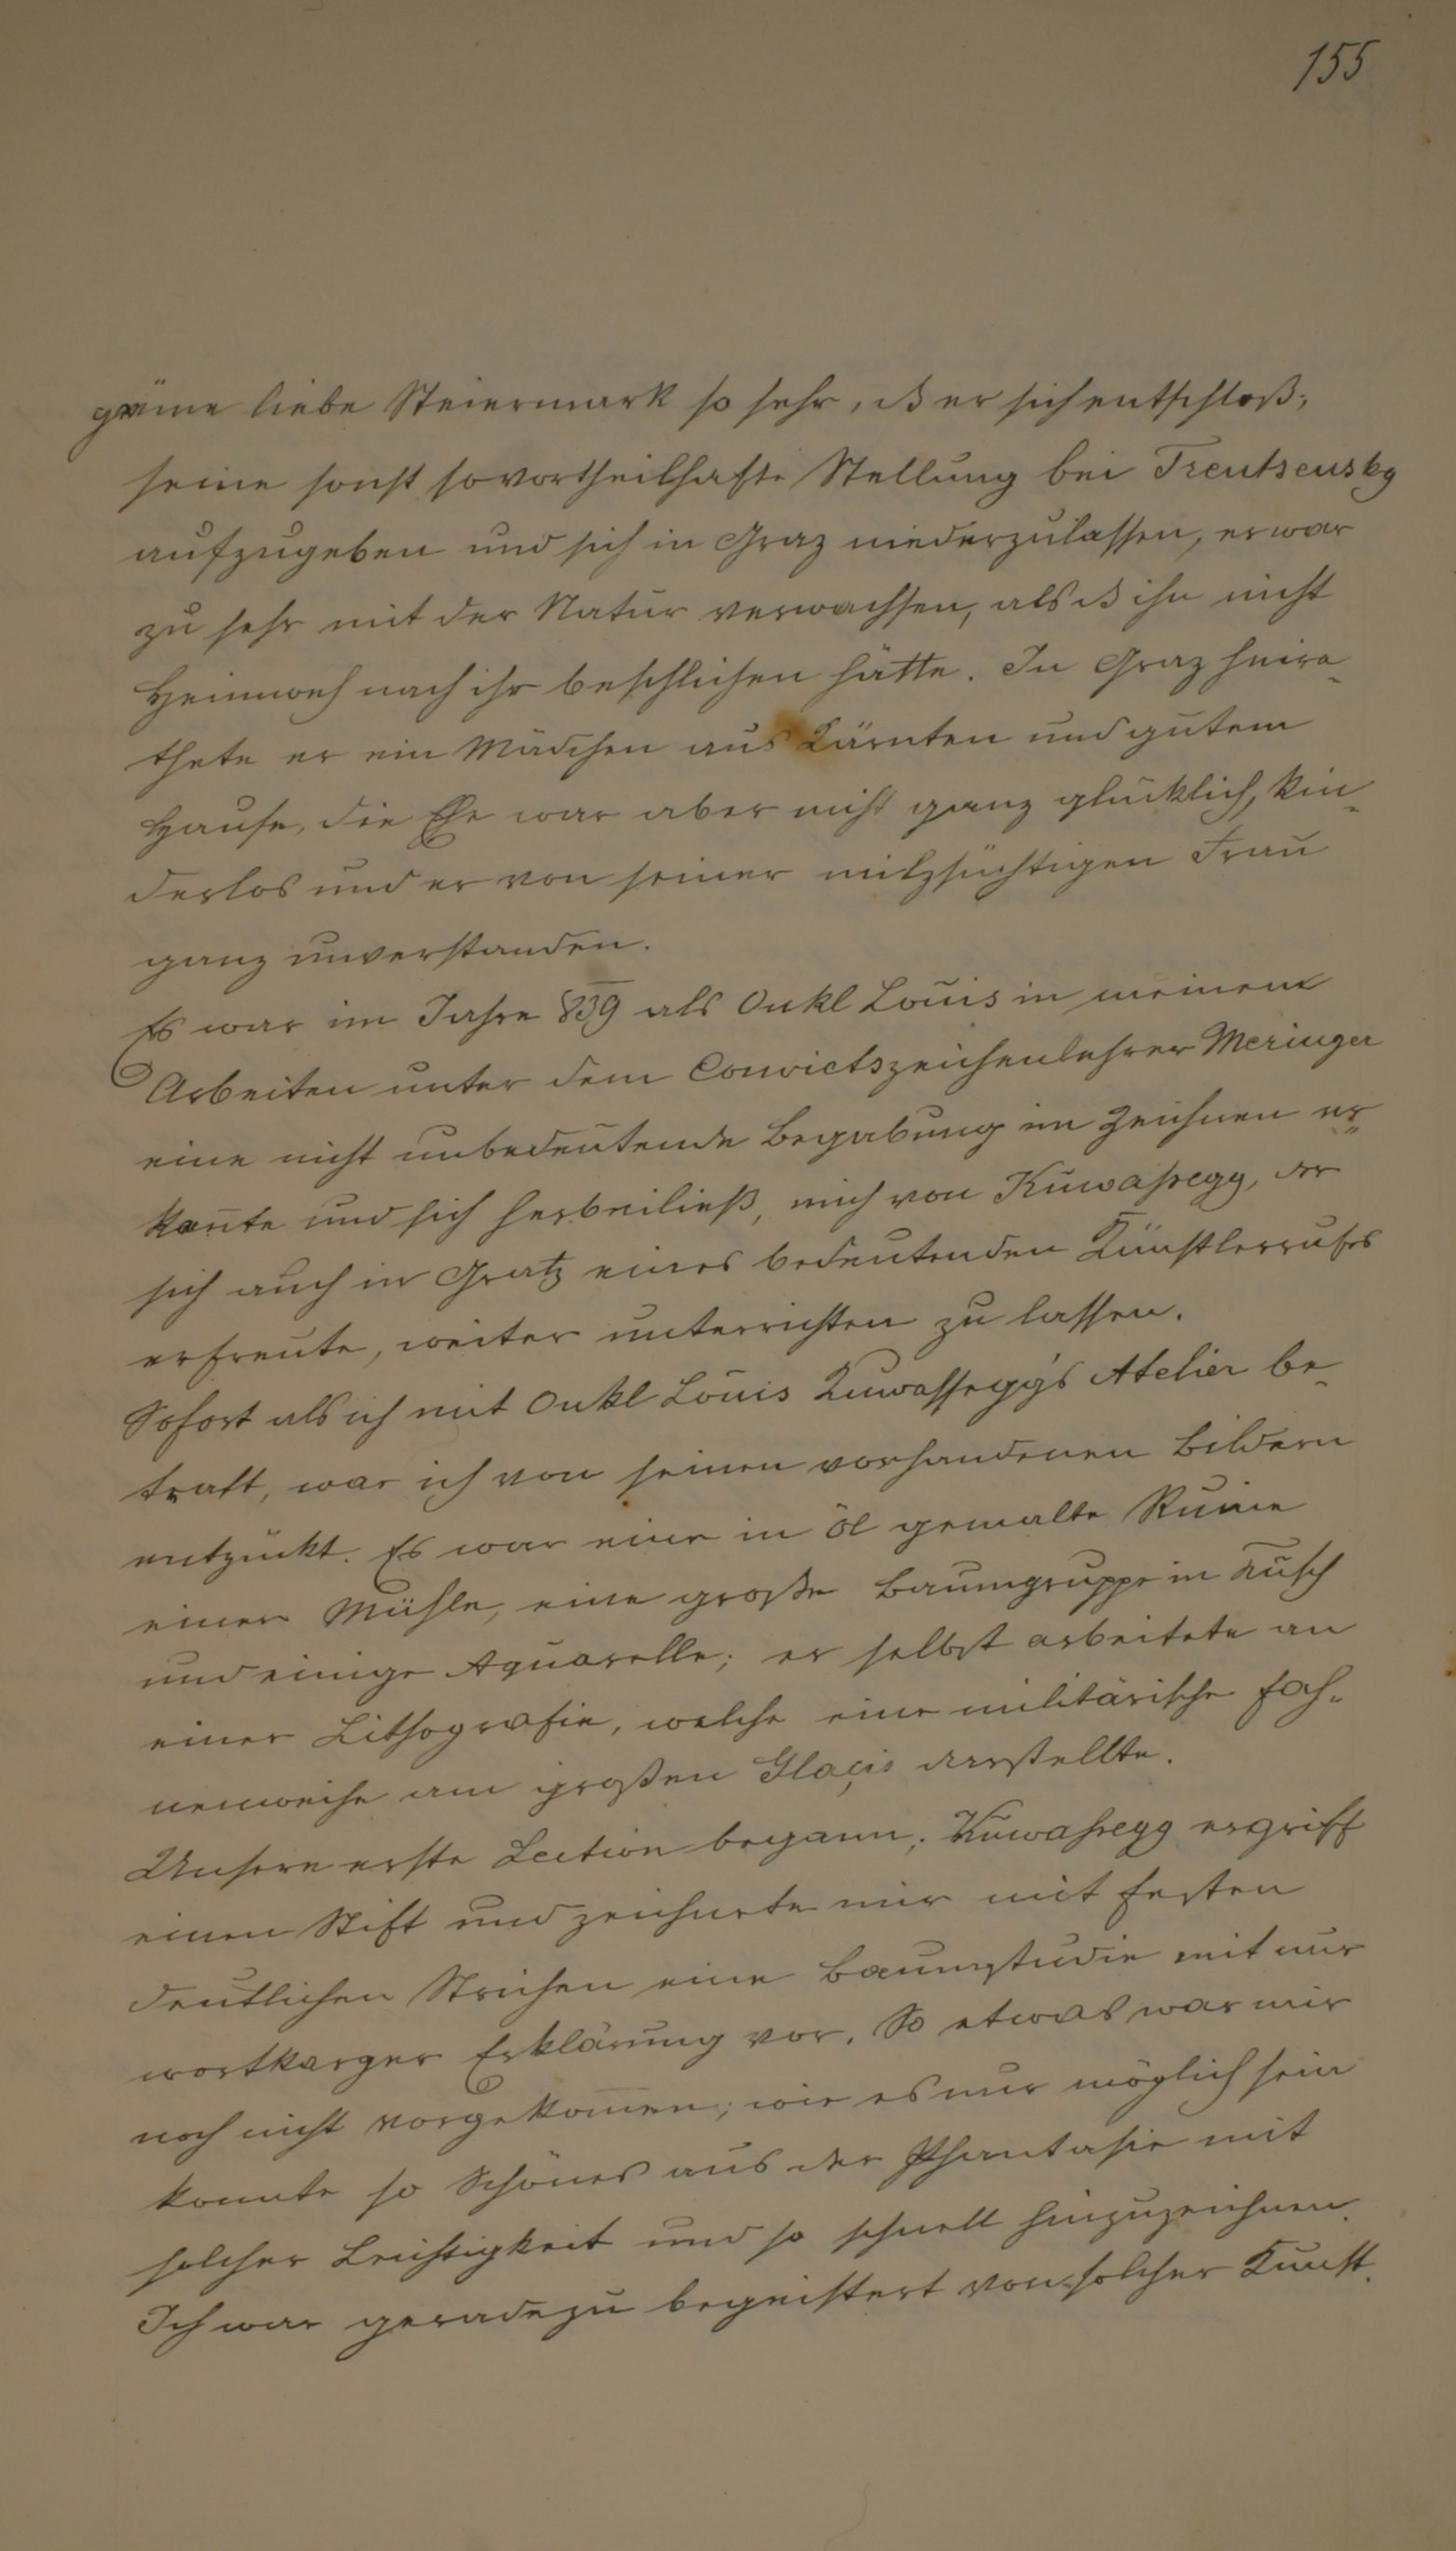 155
grüne liebe Steiermark so sehr, dß er sich entschloß,
seine sonst so vortheilhafte Stellung bei Trentsensky
aufzugeben und sich in Graz niederzulassen, er war
zu sehr mit der Natur verwachsen, als dß ihn nicht
Heimweh nach ihr beschlichen hätte. In Graz heira-
thete er ein Mädchen aus Kärnten und gutem
Hause, die Ehe war aber nicht ganz glücklich, kin-
derlos und er von seiner milzsüchtigen Frau
ganz unverstanden.
Es war im Jahre 839 als Onkl Louis in meinem
Arbeiten unter dem Convictszeichenlehrer Meringer
eine nicht unbedeutende Begabung im Zeichnen er-
kan̄te und sich herbeiließ, mich von Kuwaßegg, der
sich auch in Gratz eines bedeutenden Künstlerrufes
erfreute, weiter unterrichten zu lassen.
Sofort als ich mit Onkl Louis Kuwassegg's Atelier be-
tratt, war ich von seinen vorhandenen Bildern
entzückt. Es war eine in Öl gemalte Ruine
einer Mühle, eine große Baumgruppe in Tusch
und einige Aquarelle; er selbst arbeitete an
einer Lithografie, welche eine militärische Fah-
nenweihe am großen Glaçis darstellte.
Unsere erste Lection begann; Kuwaßegg ergriff
einen Stift und zeichnete mir mit festen
deutlichen Strichen eine Baumstudie mit nur
wortkarger Erklärung vor. So etwas war mir
noch nicht vorgekom̄en; wie es nur möglich sein
konnte so Schönes aus der Phantasie mit
solcher Leichtigkeit und so schnell hinzuzeichnen.
Ich war geradezu begeistert von solcher Kunst.